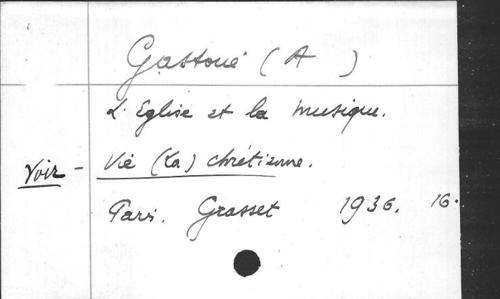 Gastoué (A )
L'Eglise et la musique.
Voir - Vie (La) chrétienne.
Paris. Grasset 1936. 16.